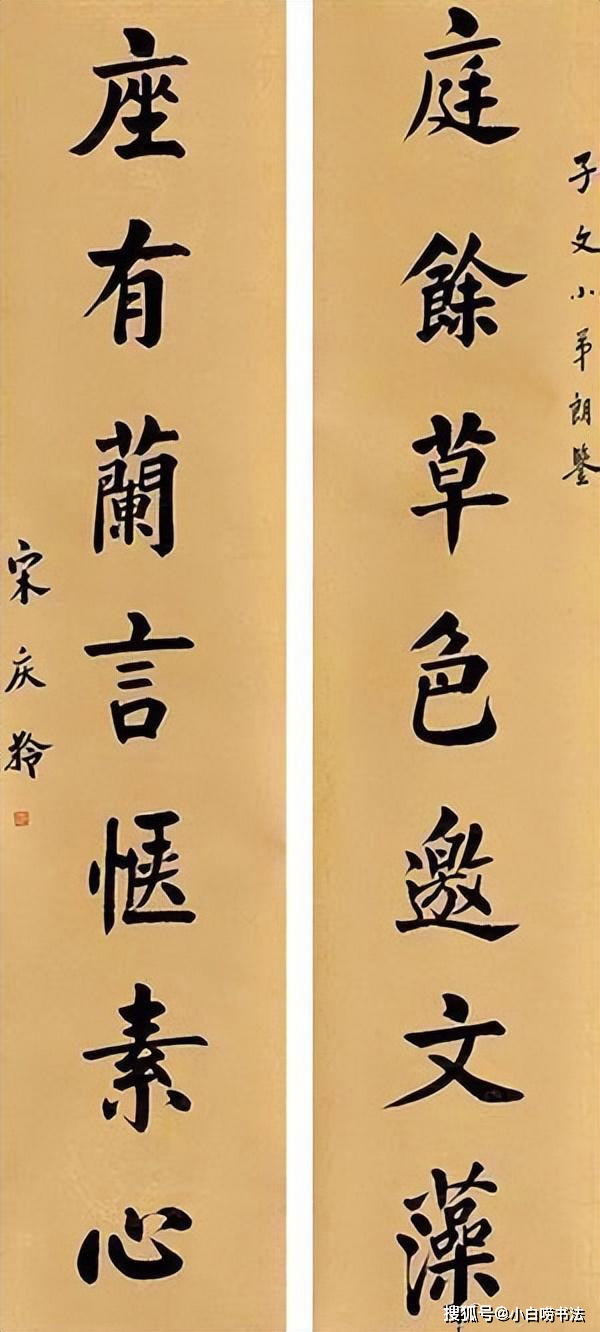 子文小弟朗鑒
庭餘草色邀文藻
座有蘭言愜素心
宋庆龄
搜狐号@小白唠书法